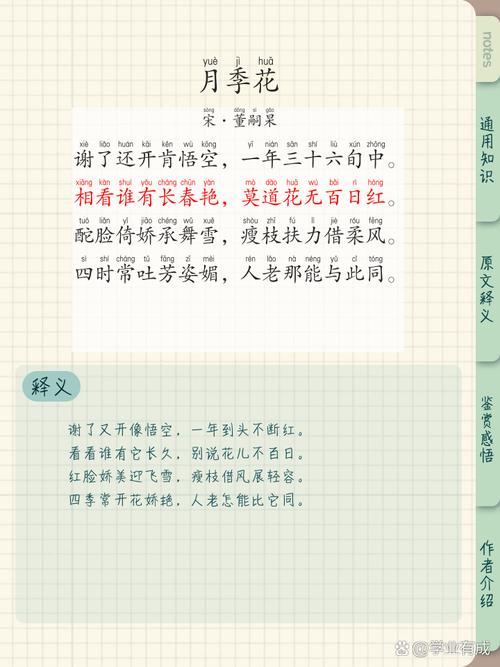 notes
yuè jì huā
月季花
sòng dǒng sì gǎo
宋·董嗣杲
xiè liǎo huán kāi kěn wù kōng yī nián sān shí liù xún zhōng
谢了还开肯悟空，一年三十六旬中。
xiāng kàn shuí yǒu cháng chūn yàn mò dào huā wú bǎi rì hóng
相看谁有长春艳，莫道花无百日红。
tuó liǎn yǐ jiāo chéng wǔ xuě shòu zhī fú lì jiè róu fēng
酡脸倚娇承舞雪，瘦枝扶力借柔风。
sì shí cháng tǔ fāng zī mèi rén lǎo nà néng yǔ cǐ tóng
四时常吐芳姿媚，人老那能与此同。
释义
谢了又开像悟空，一年到头不断红。
看看谁有它长久，别说花儿不百日。
红脸娇美迎飞雪，瘦枝借风展轻容。
四季常开花娇艳，人老怎能比它同。
通用知识
原文释义
鉴赏感悟
作者介绍
@学业有成